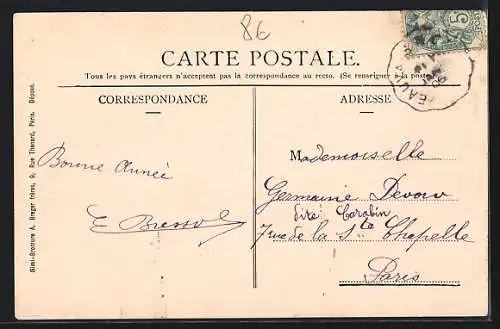 86
CARTE POSTALE.
Tous les pays étrangers n'acceptent pas la correspondance au recto. (Se renseigner à la poste
CORRESPONDANCE
ADRESSE
Bonne Année
E Bressol
Mademoiselle
Germaine Devow
dite Carabin
7 rue de la Ste Chapelle
Paris
Simi-Bromure A. Breger frères, 9, Rue Thenard, Paris. Déposé.
5